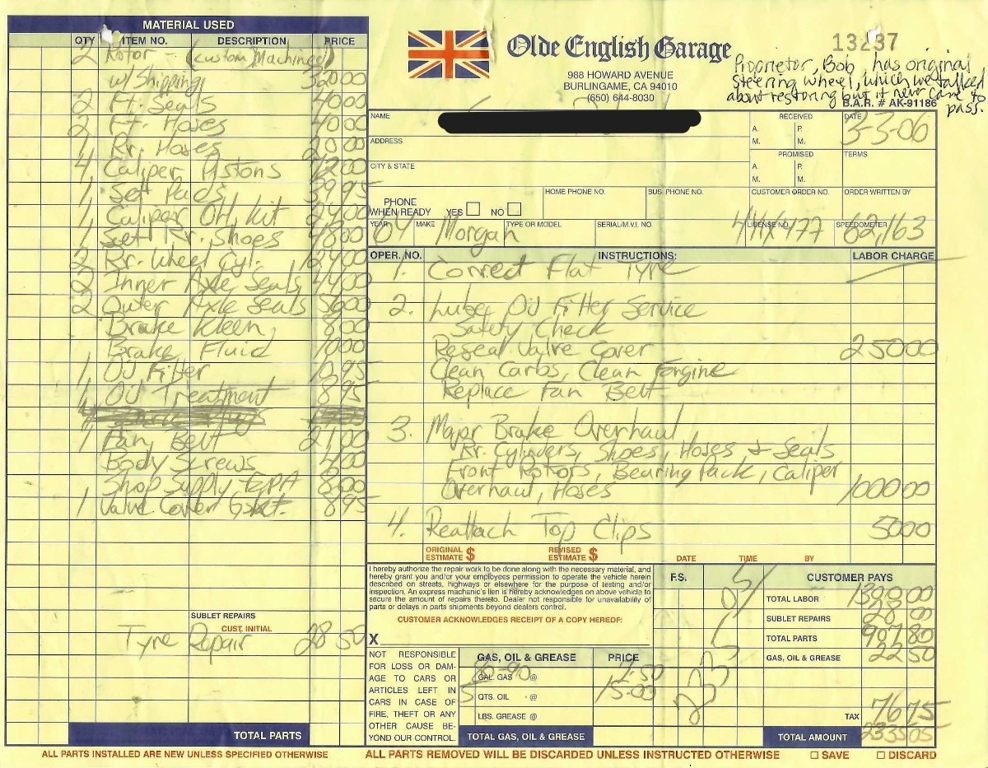 MATERIAL USED
QTY ITEM NO. DESCRIPTION PRICE
2 Rotor - (custom Machined)
w/ Shipping
2 Ft. Seals 4000
2 Ft. Hoses 4000
1 Rr. Hoses 2000
4 Caliper Pistons
1 Set Pads 3995
1 Caliper OH, kit 2400
1 Set Rr. Shoes 4800
2 Rr. Wheel Cyl. 12400
2 Inner Axle Seals 4400
2 Outer Axle Seals 5600
Brake Kleen 800
Brake Fluid 1000
1 Oil Filter 1095
1 Oil Treatment 895
1 Fan Belt 2100
Body Screws 400
Shop Supply & EPA 800
1 Valve Cover Gskt. 895
SUBLET REPAIRS
CUST. INITIAL
Tyre Repair 28 50
TOTAL PARTS
ALL PARTS INSTALLED ARE NEW UNLESS SPECIFIED OTHERWISE
Olde English Garage
988 HOWARD AVENUE
BURLINGAME, CA 94010
(650) 644-8030
13237
Proprietor, Bob, has original
steering wheel, which we talked
about restoring but it never came to
pass.
B.A.R. # AK-91186
NAME
RECEIVED
A. M. P. M.
DATE 3-3-06
ADDRESS
PROMISED
A. M. P. M.
TERMS
CITY & STATE
PHONE WHEN READY YES NO
HOME PHONE NO.
BUS. PHONE NO.
CUSTOMER ORDER NO.
ORDER WRITTEN BY
YEAR 64 MAKE Morgan TYPE OR MODEL
SERIAL/M.V.I. NO.
LICENSE NO. 4HX477
SPEEDOMETER 62,163
OPER. NO. INSTRUCTIONS: LABOR CHARGE
1. Correct Flat Tyre
2. Lube, Oil Filter Service
Safety Check
Reseal Valve Cover 25000
Clean Carbs, Clean Engine
Replace Fan Belt
3. Major Brake Overhaul
Rr. Cylinders, Shoes, Hoses & Seals
Front Rotors, Bearing Pack, Caliper
Overhaul, Hoses 100000
4. Reattach Top Clips 5000
ORIGINAL ESTIMATE $ REVISED ESTIMATE $ DATE TIME BY
I hereby authorize the repair work to be done along with the necessary material, and
hereby grant you and/or your employees permission to operate the vehicle herein
described on streets, highways or elsewhere for the purpose of testing and/or
inspection. An express mechanic's lien is hereby acknowledged on above vehicle to
secure the amount of repairs thereto. Dealer not responsible for unavailability of
parts or delays in parts shipments beyond dealers control.
CUSTOMER ACKNOWLEDGES RECEIPT OF A COPY HEREOF:
X
NOT RESPONSIBLE
FOR LOSS OR DAM-
AGE TO CARS OR
ARTICLES LEFT IN
CARS IN CASE OF
FIRE, THEFT OR ANY
OTHER CAUSE BE-
YOND OUR CONTROL.
GAS, OIL & GREASE PRICE
80-90 GAL. GAS @ 7.50
5 QTS. OIL @ 15.00
LBS. GREASE @
TOTAL GAS, OIL & GREASE
F.S.
2335 05/
CUSTOMER PAYS
TOTAL LABOR 1300.00
SUBLET REPAIRS 28.50
TOTAL PARTS 907.80
GAS, OIL & GREASE 22 50
TAX 76.75
TOTAL AMOUNT 2335 05
ALL PARTS REMOVED WILL BE DISCARDED UNLESS INSTRUCTED OTHERWISE SAVE DISCARD